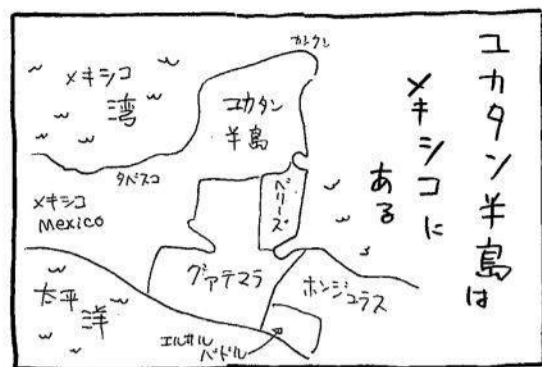 ユカタン半島は
メキシコに
ある
カンクン
メキシコ
湾
ユカタン
半島
タバスコ
ベリーズ
メキシコ
Mexico
グアテマラ
ホンジュラス
太平
洋
エルサル
バドル